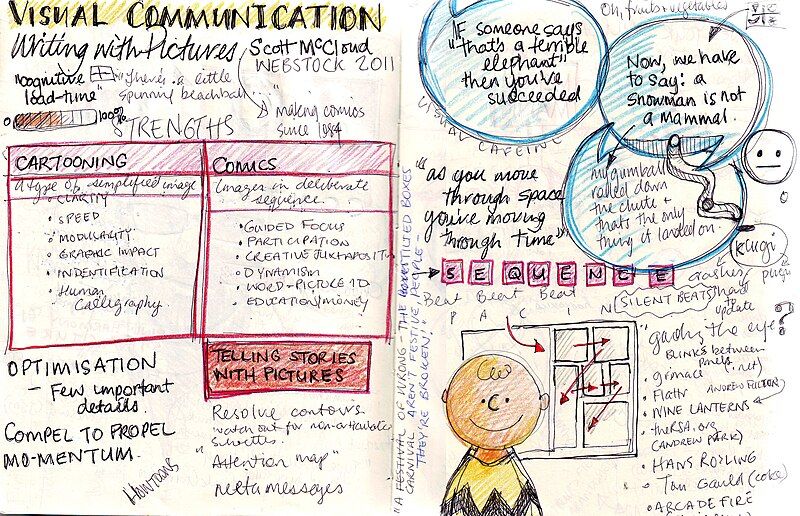 VISUAL COMMUNICATION
Writing with Pictures
Scott McCloud
WEBSTOCK 2011
"cognitive
load-time"
"There's a little
spinning beachball...
0 100%
making comics
since 1984
STRENGTHS
CARTOONING
A type of simplified image
• CLARITY
• SPEED
• MODULARITY
• GRAPHIC IMPACT
• INDENTIFICATION
• Human
Calligraphy
COMICS
Images in deliberate
sequence.
• GUIDED FOCUS
• PARTICIPATION
• CREATIVE JUXTAPOSIT
• DYNAMISM
• WORD-PICTURE ID
• EDUCATION/MONEY
OPTIMISATION
- Few important
details.
COMPEL TO PROPEL
MO-MENTUM.
Howtoons
TELLING STORIES
WITH PICTURES
Resolve contours.
watch out for
"Attention map"
meta messages
"A FESTIVAL OF WRONG - THE TILTED BOXES
CARNIVAL AREN'T FESTIVE PEOPLE -
THEY'RE BROKEN!"
IF someone says
"that's a terrible
elephant"
then you've
succeeded
VISUAL CAFFEINE
Oh, fruits & vegetables
Now, we have
to say: a
snowman is not
a mammal.
my gumball
rolled down
the chute &
that's the only
thing it landed on
"as you move
through space
you're moving
through time"
SEQUENCE
Beat Beat Beat
P A C I N
SILENT BEATS
crashes
update
"gading the eye"
BLINKS between
panels
• grimace
• Flattr
ANDREW FULTON
• NINE LANTERNS
• theRSA.org
(ANDREW PARK)
• HANS ROSLING
• Tom Gauld (coke)
• ARCADE FIRE